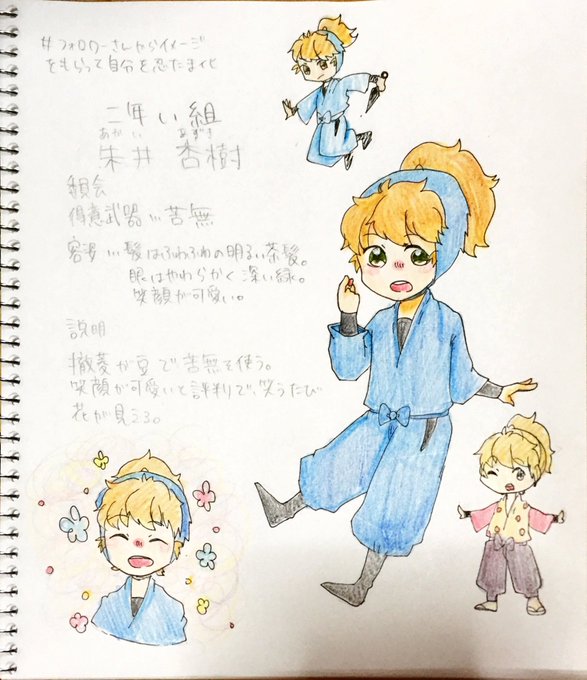 #フォロワーさんからイメージ
をもらって自分を忍たま化
二年い組
あかい あずき
朱井 杏樹
得意武器…苦無
容姿…髪はふわふわの明るい茶髪。
眼はやわらかく深い緑。
笑顔が可愛い。
説明
撒菱が豆で苦無を使う。
笑顔が可愛いと評判で、笑うたび
花が見える。